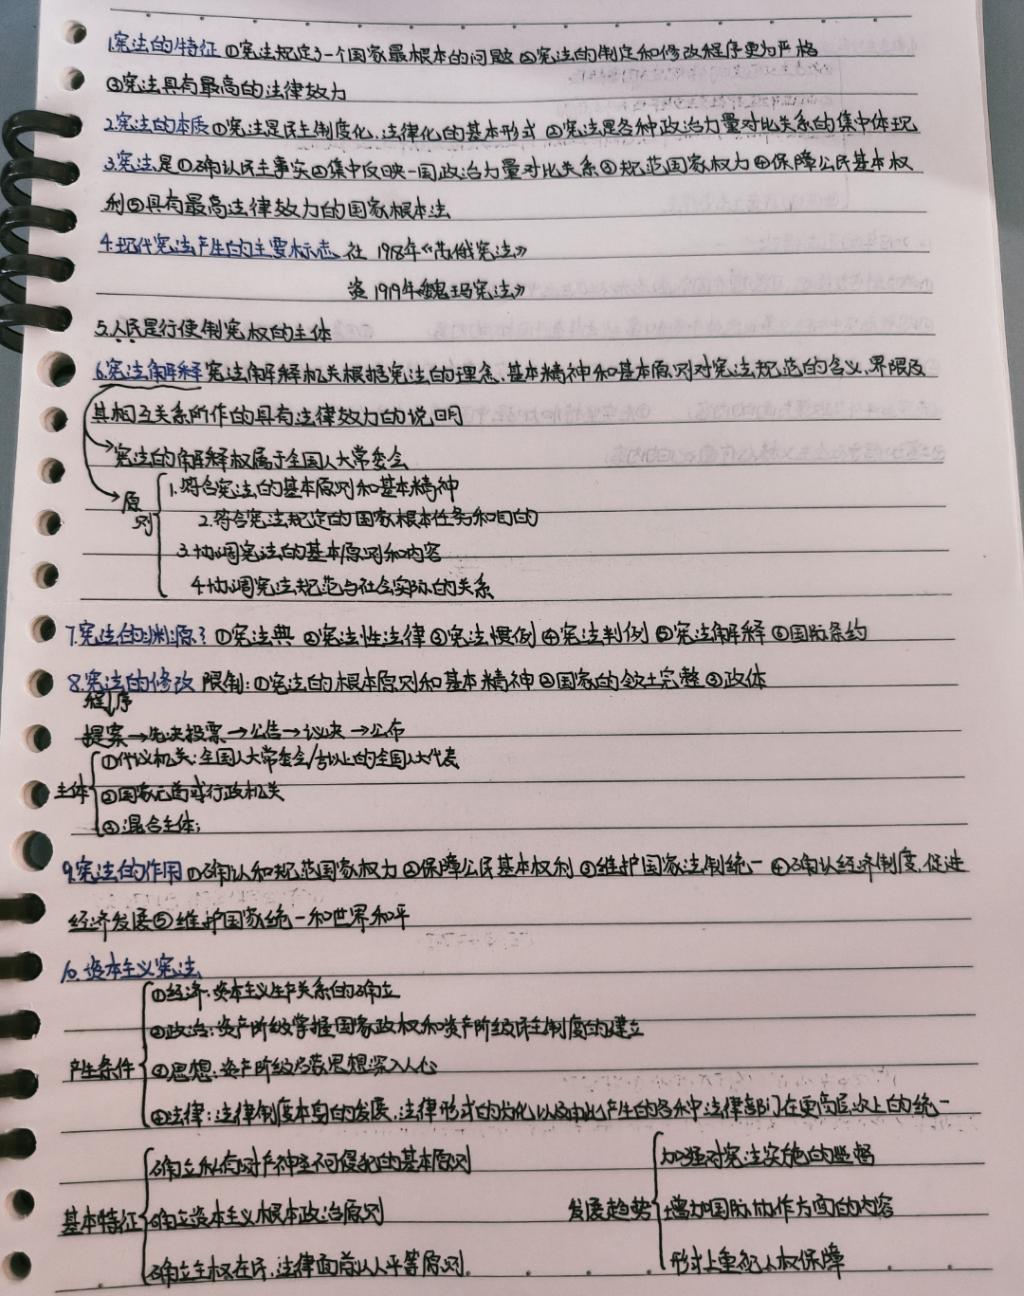 1.宪法的特征 ①宪法规定了一个国家最根本的问题 ②宪法的制定和修改程序更为严格
③宪法具有最高的法律效力
2.宪法的本质 ①宪法是民主制度化、法律化的基本形式 ②宪法是各种政治力量对比关系的集中体现
3.宪法是①确认民主事实②集中反映一国政治力量对比关系③规范国家权力④保障公民基本权
利⑤具有最高法律效力的国家根本法
4.现代宪法产生的主要标志 社 1918年《苏俄宪法》
资 1919年《魏玛宪法》
5.人民是行使制宪权的主体
6.宪法解释 宪法解释机关根据宪法的理念、基本精神和基本原则对宪法规范的含义、界限及
其相互关系所作的具有法律效力的说明
宪法的解释权属于全国人大常委会
原则
1.符合宪法的基本原则和基本精神
2.符合宪法规定的国家根本任务和目的
3.协调宪法的基本原则和内容
4.协调宪法规范与社会实际的关系
7.宪法的渊源? ①宪法典 ②宪法性法律 ③宪法惯例 ④宪法判例 ⑤宪法解释 ⑥国际条约
8.宪法的修改 限制:①宪法的根本原则和基本精神 ②国家的领土完整 ③政体
程序
提案→先决投票→公告→议决→公布
主体
①代议机关:全国人大常委会/1/5以上的全国人大代表
②国家元首或行政机关
③混合主体;
9.宪法的作用 ①确认和规范国家权力 ②保障公民基本权利 ③维护国家法制统一 ④确认经济制度,促进
经济发展⑤维护国家统一和世界和平
10.资本主义宪法
产生条件
①经济:资本主义生产关系的确立
②政治:资产阶级掌握国家政权和资产阶级民主制度的建立
③思想:资产阶级启蒙思想深入人心
④法律:法律制度本身的发展,法律形式的分化以及由此产生的各种法律部门在更高层次上的统一
基本特征
确立私有财产神圣不可侵犯的基本原则
确立资本主义根本政治原则
确立主权在民、法律面前人人平等原则.
发展趋势
加强对宪法实施的监督
增加国际协作方面的内容
形式上重视人权保障